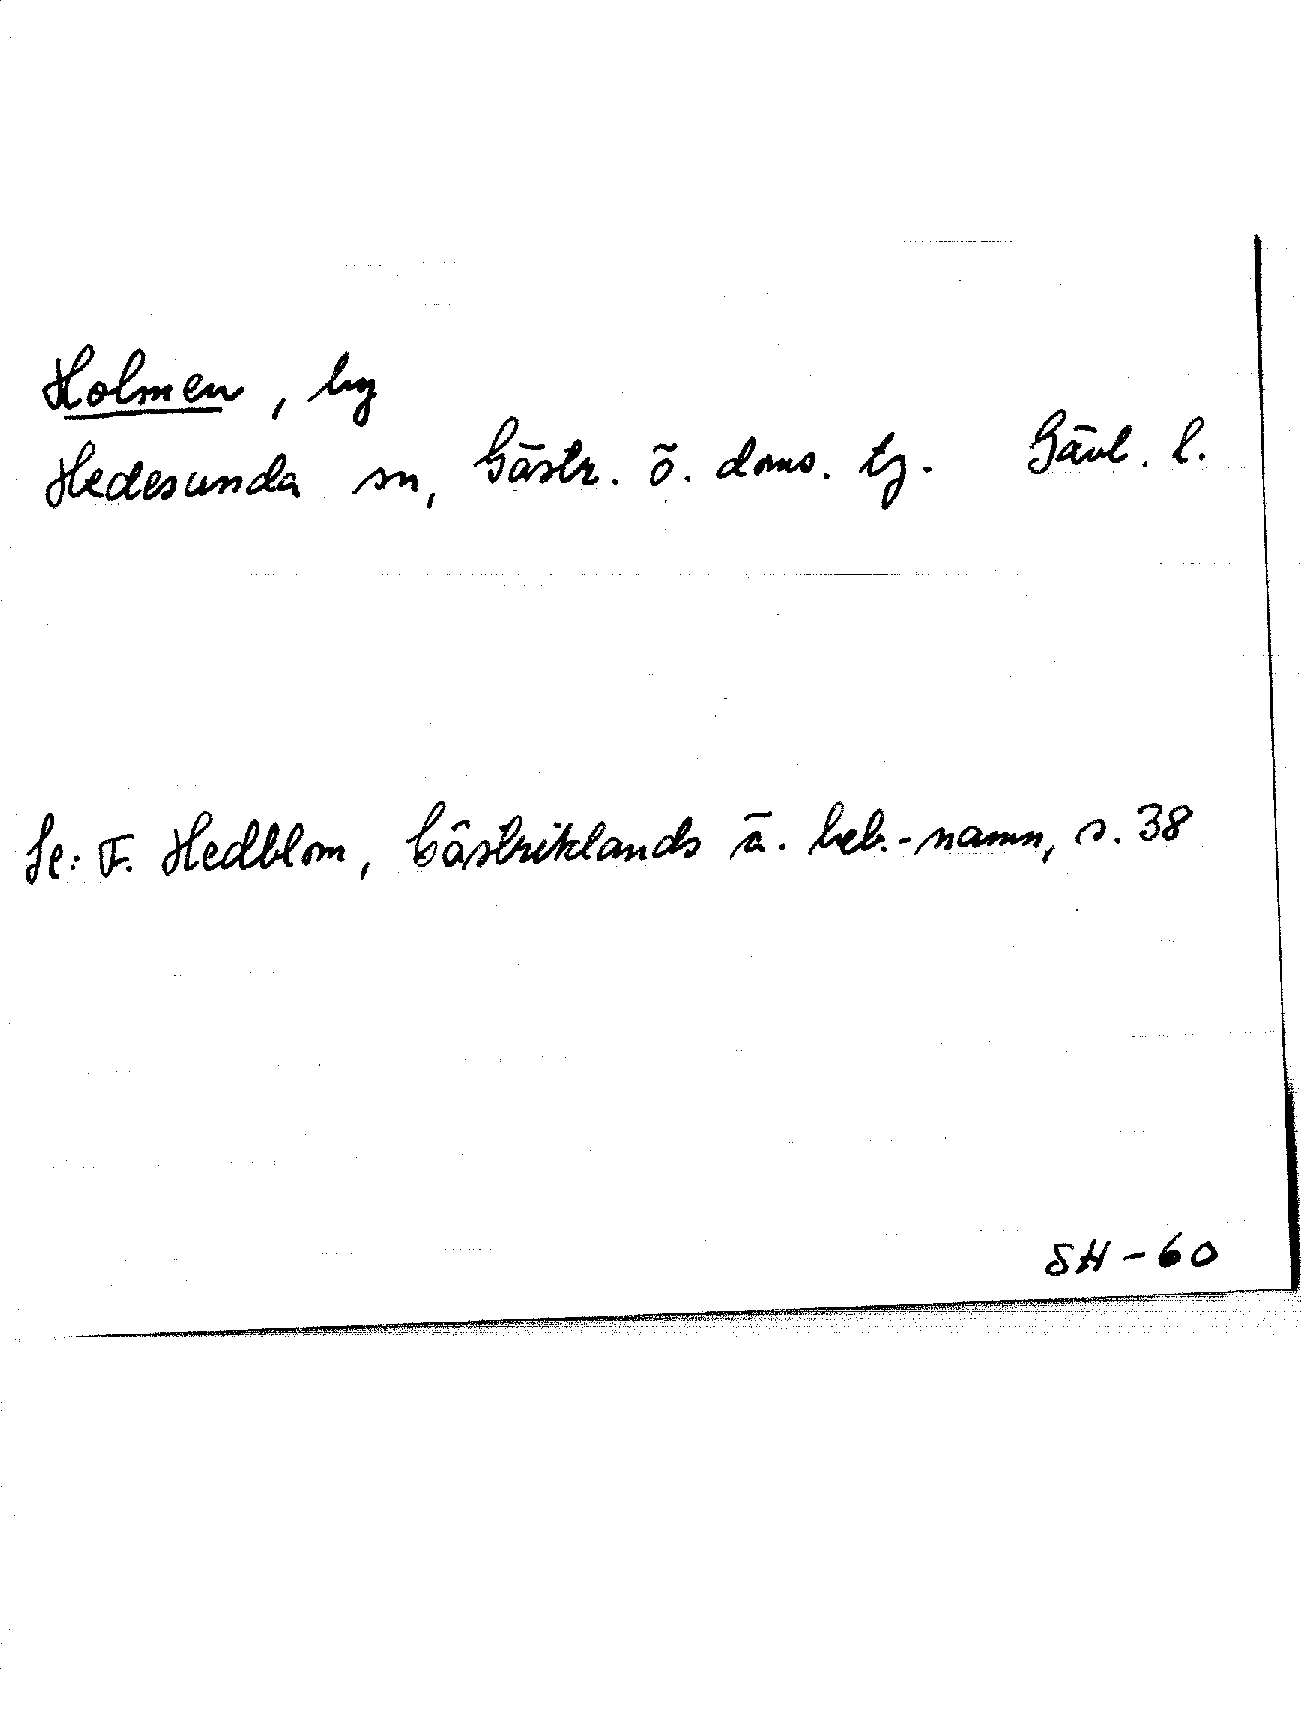 Holmen, by
Hedesunda sn, Gästr. ö. doms. tg. Gävl. l.
Se: F. Hedblom, Gästriklands ä. beb.-namn, s. 38
SH-60